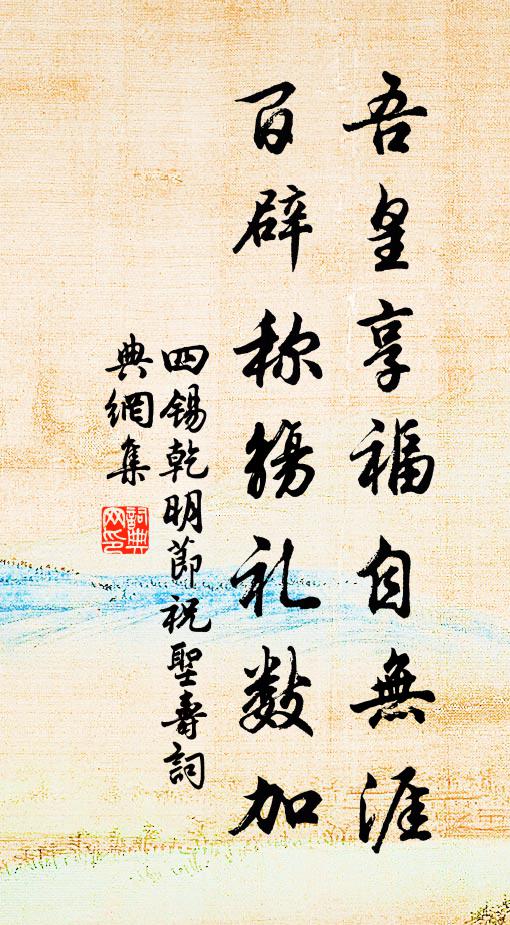 吾皇享福自無涯
百辟称觴礼数加
四锡乾明節祝聖壽詞
典網集
詞典网印